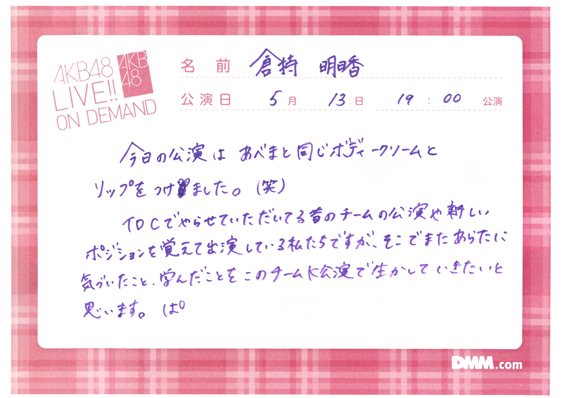 AKB48
LIVE!!
ON DEMAND
AKB
48
名前 倉持 明日香
公演日 5月 13日 19:00 公演
今日の公演は あべまと同じボディークリームと
リップをつけました。(笑)
TDCでやらせていただいてる昔のチームの公演や新しい
ポジションを覚えて出演している私たちですが、そこでまたあらたに
気づいたこと、学んだことをこのチームK公演で生かしていきたいと
思います。 ぱ。
DMM.com